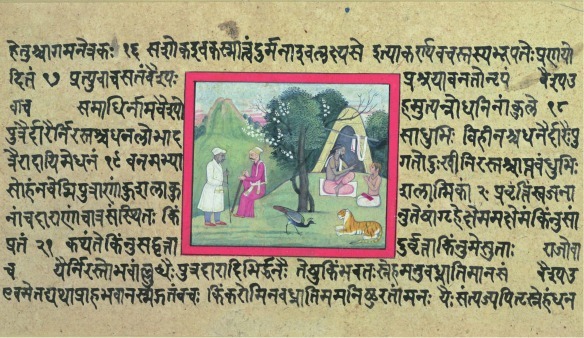 हेतुश्चागमनेत्रकः १६ सशोकइवकस्मात्त्वंदुर्मनाइवलक्ष्यसे इत्याकर्ण्यवचस्तस्यभूपतेः प्रणयो
दितं १७ प्रत्युवाचसतंवैश्यः प्रश्रयावनतोनृपं वैश्यउ
वाच समाधिर्नामवैश्यो हमुत्पन्नोधनिनांकुले १८
पुत्रदारैर्निरस्तश्चधनलोभाद साधुभिः विहीनश्चधनैर्दारैःपु
त्रैरादायमेधनं १९ वनमभ्या गतोदुःखीनिरस्तश्चाप्तबंधुभिः
सोहंनवेद्मिपुत्राणांकुशलाकु शलात्मिकां २० प्रवृत्तिंस्वजना
नांचदाराणांचात्रसंस्थितः किं नुतेषांगृहेक्षेममक्षेमंकिंनुसां
प्रतं २१ कथंतेकिंनुसद्वृत्ता दुर्वृत्ताकिंनुमेसुताः राजोवा
च यैर्निरस्तोभवांल्लुब्धैः पुत्रदारादिभिर्द्धनैः तेषुकिंभवतः स्नेहमनुबध्नातिमानसं वैश्यउ
एवमेतद्यथाप्राहभवानस्मद्गतंवचः किंकरोमिनबध्नातिममनिष्ठुरतांमनः यैः संत्यज्यपितृस्नेहंधन